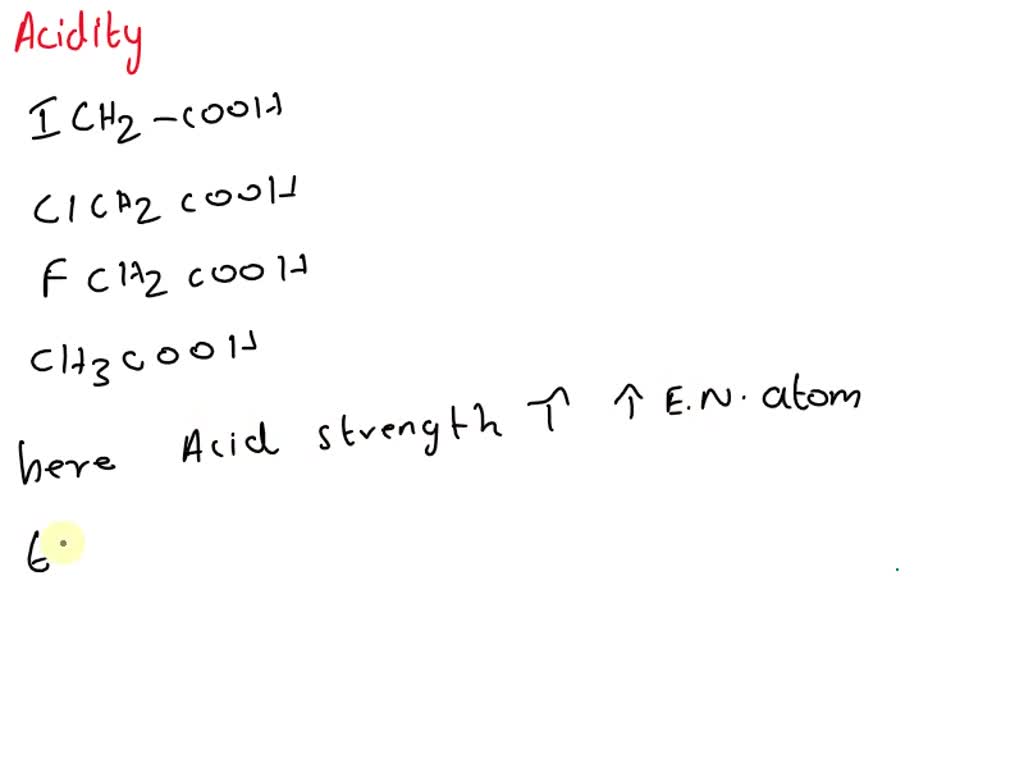 Acidity
ICH2-COOH
ClCH2COOH
FCH2COOH
CH3COOH
here Acid strength ↑ ↑ E.N. atom
E